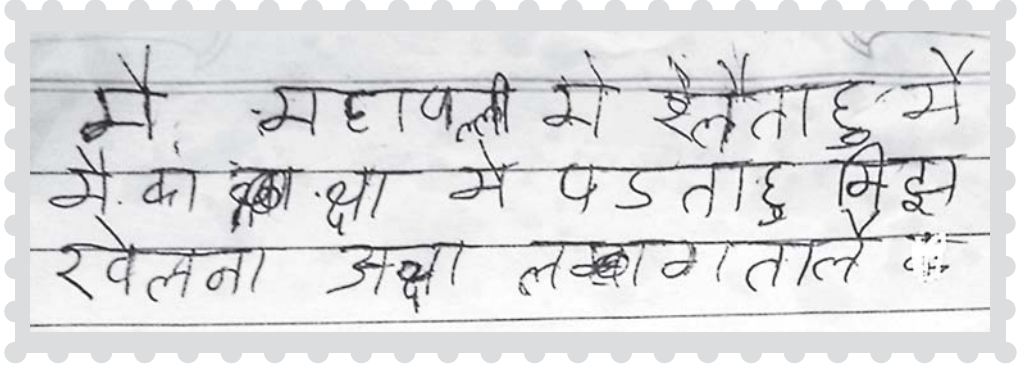 मै महापल्ली मे रैलैताहु मै
मै का क्षा मे पडताहु मिझ
खेलना अक्षा लगाताले